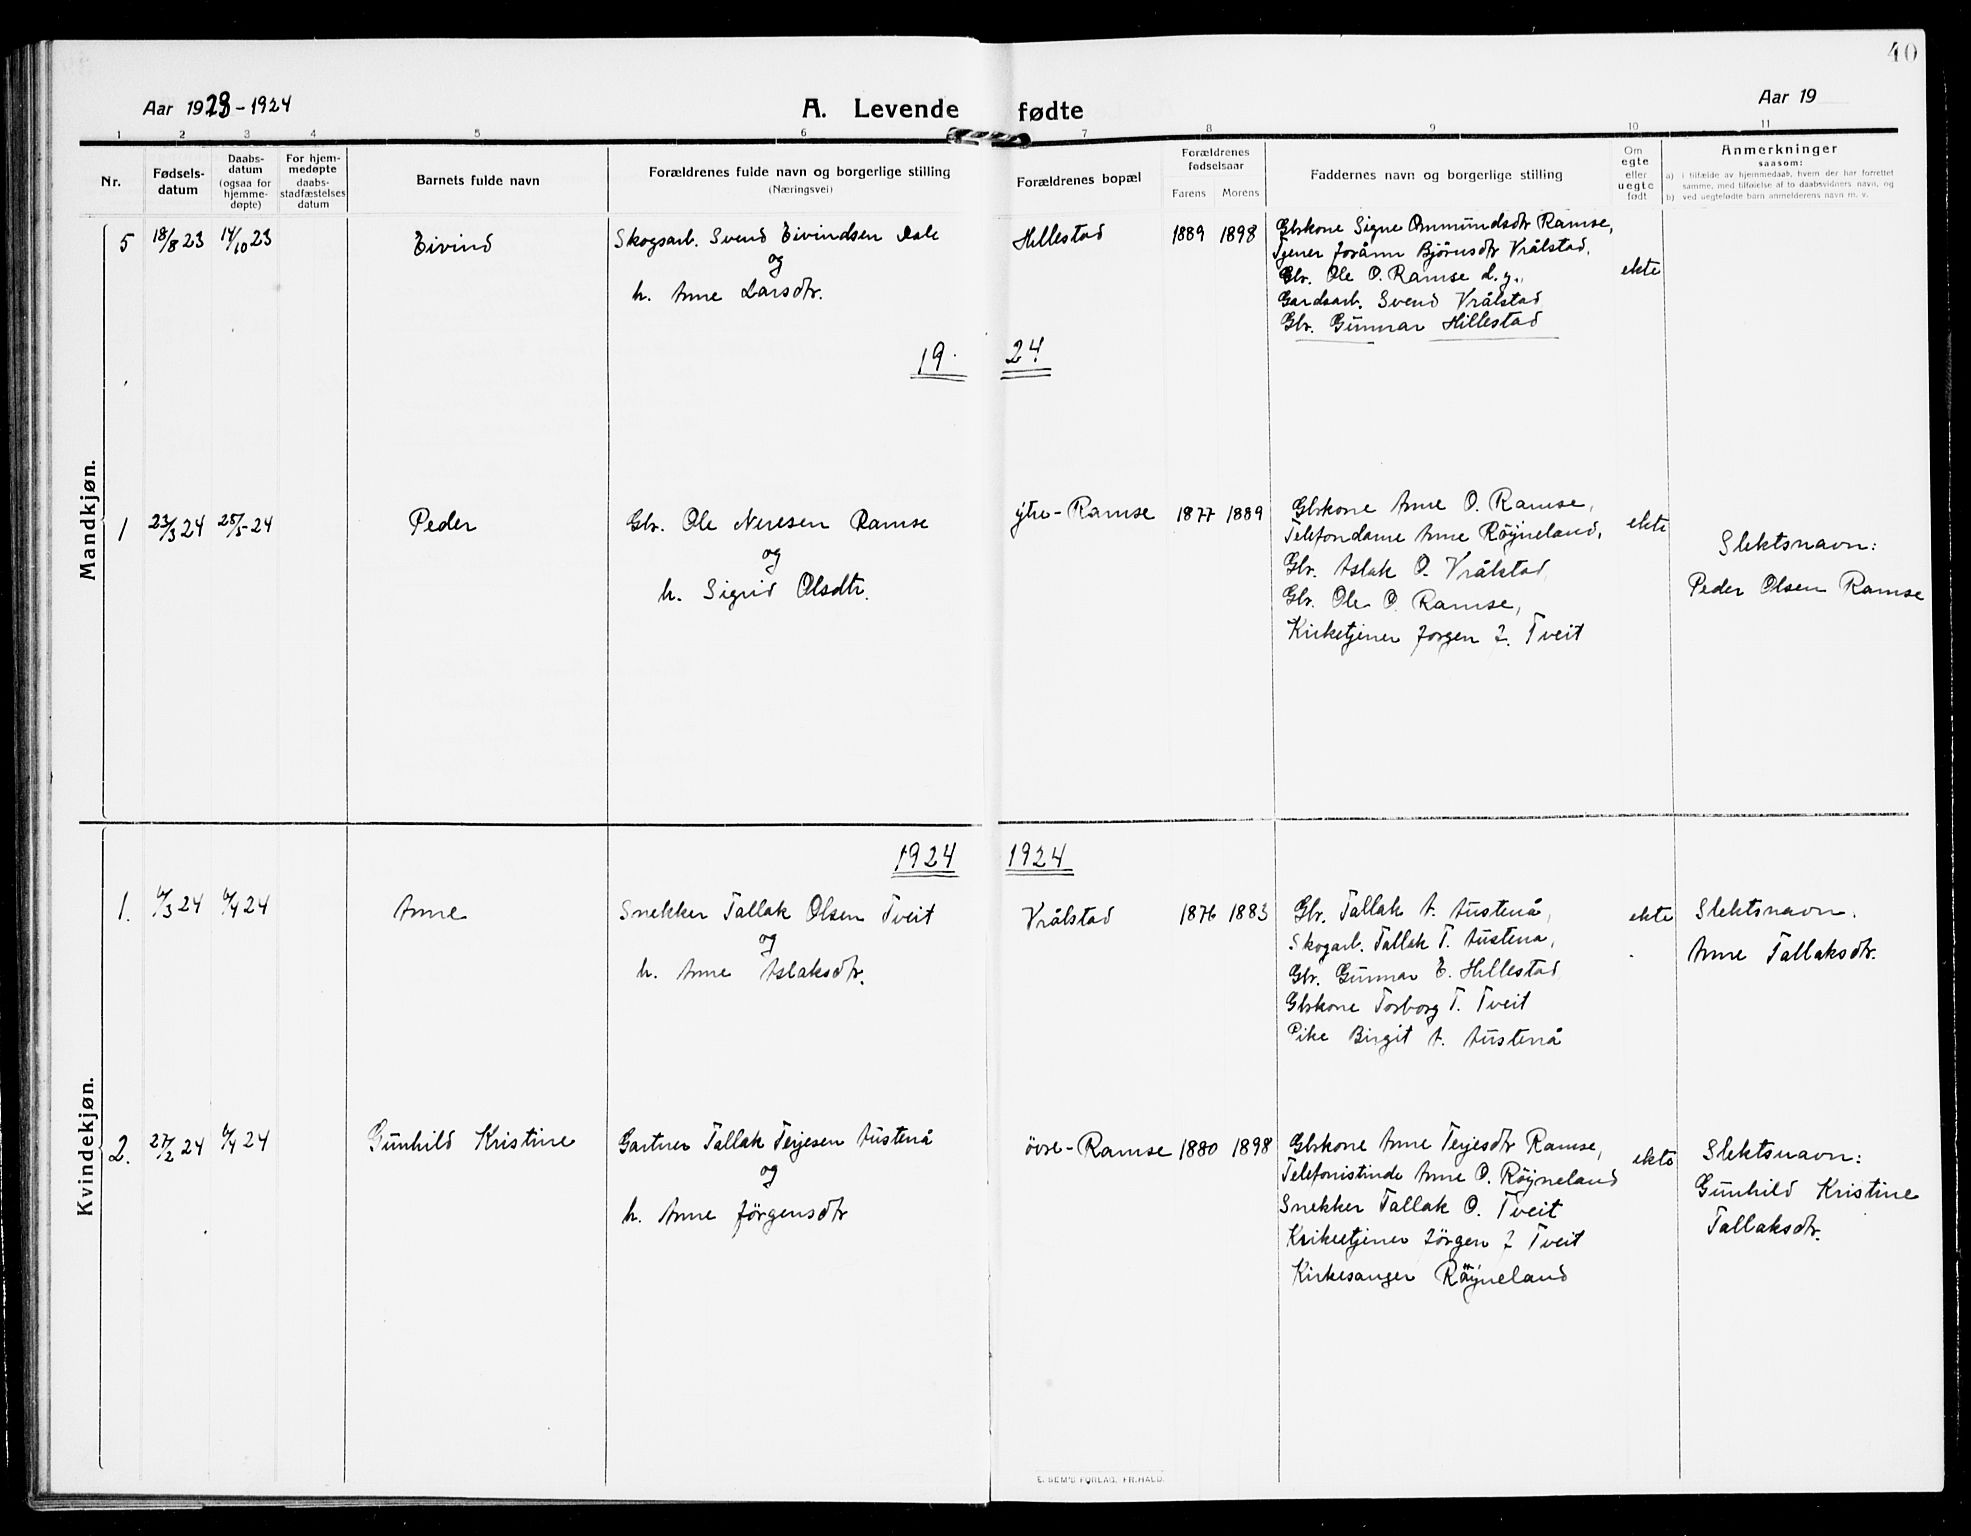 40
Aar 1923-1924
A. Levende fødte
Aar 19
1 2 3 4 5 6 7 8 9 10 11
Nr.
Fødsels-
datum
Daabs-
datum
(ogsaa for
hjemme-
døpte)
For hjem-
medøpte
daabs-
stadfæstelses
datum
Barnets fulde navn
Forældrenes fulde navn og borgerlige stilling
(Næringsvei)
Forældrenes bopæl
Forældrenes
fødselsaar
Farens Morens
Faddernes navn og borgerlige stilling
Om
egte
eller
uegte
født
Anmerkninger
saasom:
a) i tilfælde av hjemmedaab, hvem der har forrettet
samme, med tilføielse af to daabsvidners navn, og
b) ved uegtefødte barn anmelderens navn m. v.
Mandkjøn.
5 18/8 23 14/10 23 Eivind
Skogsarb. Svend Eivindsen Dale
og
h. Anne Larsdtr.
Hillestad 1889 1898
Gbrkone Signe Ommundsdtr Ramse,
Tjener Jorånn Bjørnsdtr Vrålstad,
Gbr. Ole O. Ramse d. y.,
Gardsarb. Svend Vrålstad
Gbr. Gunnar Hillestad
ekte
19 24
1 23/3 24 25/5-24 Peder
Gbr. Ole Neresen Ramse
og
h. Sigrid Olsdtr.
ytre-Ramse 1877 1889
Gbrkone Anne O. Ramse,
Telefondame Anne Røyneland,
Gbr. Aslak O. Vrålstad,
Gbr. Ole O. Ramse,
Kirketjener Jørgen J. Tveit
ekte
Slektsnavn:
Peder Olsen Ramse
Kvindekjøn.
1924 1924
1. 6/3 24 6/4 24 Anne
Snekker Tallak Olsen Tveit
og
h. Anne Aslaksdtr.
Vrålstad 1876 1883
Gbr. Tallak A. Austenå,
Skogarb. Tallak T. Austenå,
Gbr. Gunnar E. Hillestad
Gbrkone Torborg T. Tveit
Pike Birgit A. Austenå
ekte
Slektsnavn:
Anne Tallaksdtr.
2. 27/2 24 6/4 24 Gunhild Kristine
Gartner Tallak Terjesen Austenå
og
h. Anne Jørgensdtr
øvre-Ramse 1880 1898
Gbrkone Anne Terjesdtr Ramse,
Telefonistinde Anne O. Røyneland
Snekker Tallak O. Tveit
Kirketjener Jørgen J Tveit
Kirkesanger Røyneland
ekte
Slektsnavn:
Gunhild Kristine
Tallaksdtr.
E. SEM'S FORLAG, FR.HALD.